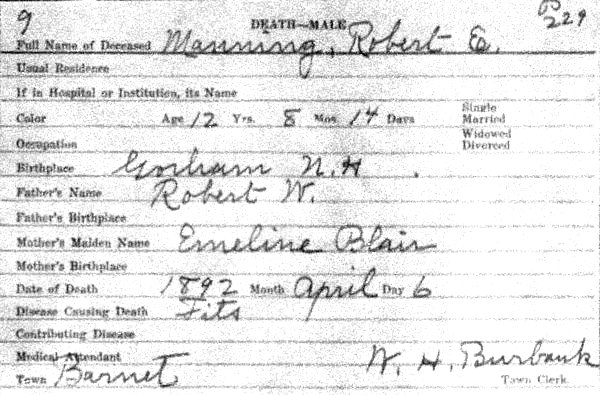 9 DEATH—MALE P 229
Full Name of Deceased Manning, Robert E.
Usual Residence
If in Hospital or Institution, its Name
Color Age 12 Yrs. 8 Mos 14 Days Single
Married
Occupation Widowed
Divorced
Birthplace Gorham N.H.
Father's Name Robert W.
Father's Birthplace
Mother's Maiden Name Emeline Blair
Mother's Birthplace
Date of Death 1892 Month April Day 6
Disease Causing Death Fits
Contributing Disease
Medical Attendant W. H. Burbank
Town Barnet Town Clerk